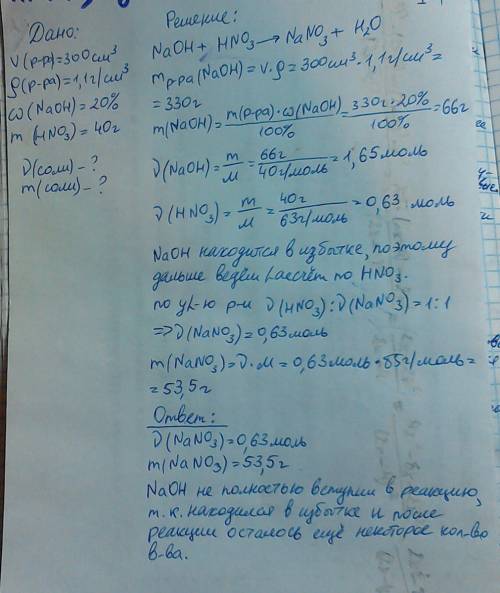 Дано:
V(р-ра)=300см³
ρ(р-ра)=1,1г/см³
ω(NaOH)=20%
m (HNO₃)=40г
ν(соли)-?
m(соли)-?
Решение:
NaOH + HNO₃ → NaNO₃ + H₂O
m р-ра(NaOH)=V·ρ=300см³·1,1г/см³=
=330г
m(NaOH)=m(р-ра)·ω(NaOH)/100%=330г·20%/100%=66г
ν(NaOH)=m/M=66г/40г/моль=1,65моль
ν(HNO₃)=m/M=40г/63г/моль=0,63 моль
NaOH находится в избытке, поэтому
дальше ведём рассчёт по HNO₃.
по ур-ю р-и ν(HNO₃):ν(NaNO₃)=1:1
=>ν(NaNO₃)=0,63моль
m(NaNO₃)=ν·M=0,63моль·85г/моль=
=53,5г
Ответ:
ν(NaNO₃)=0,63моль
m(NaNO₃)=53,5г
NaOH не полностью вступил в реакцию,
т.к. находился в избытке и после
реакции осталось ещё некоторое кол-во
в-ва.